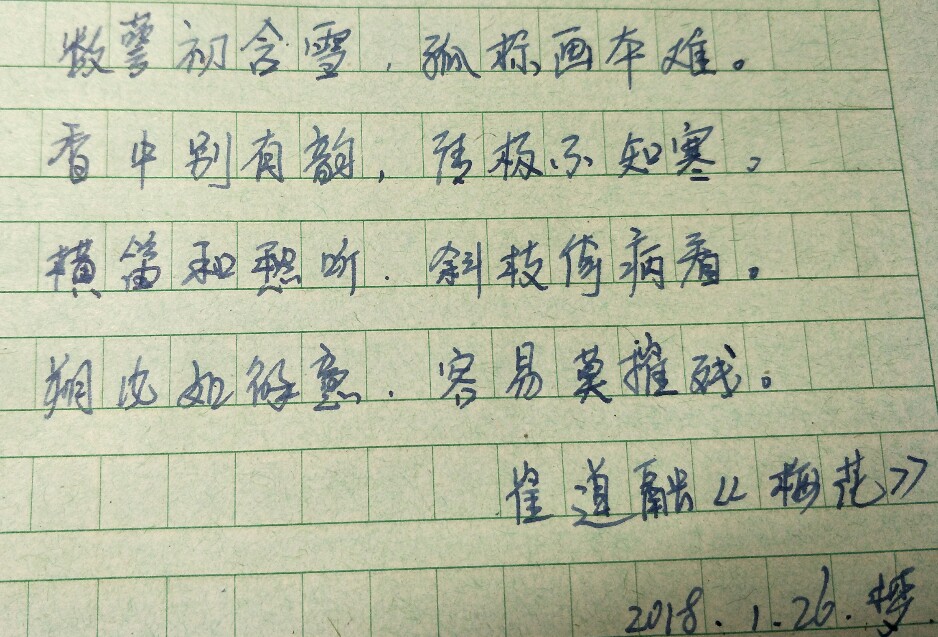 数萼初含雪，孤标画本难。
香中别有韵，清极不知寒。
横笛和愁听，斜枝倚病看。
朔风如解意，容易莫摧残。
崔道融《梅花》
2018.1.26.